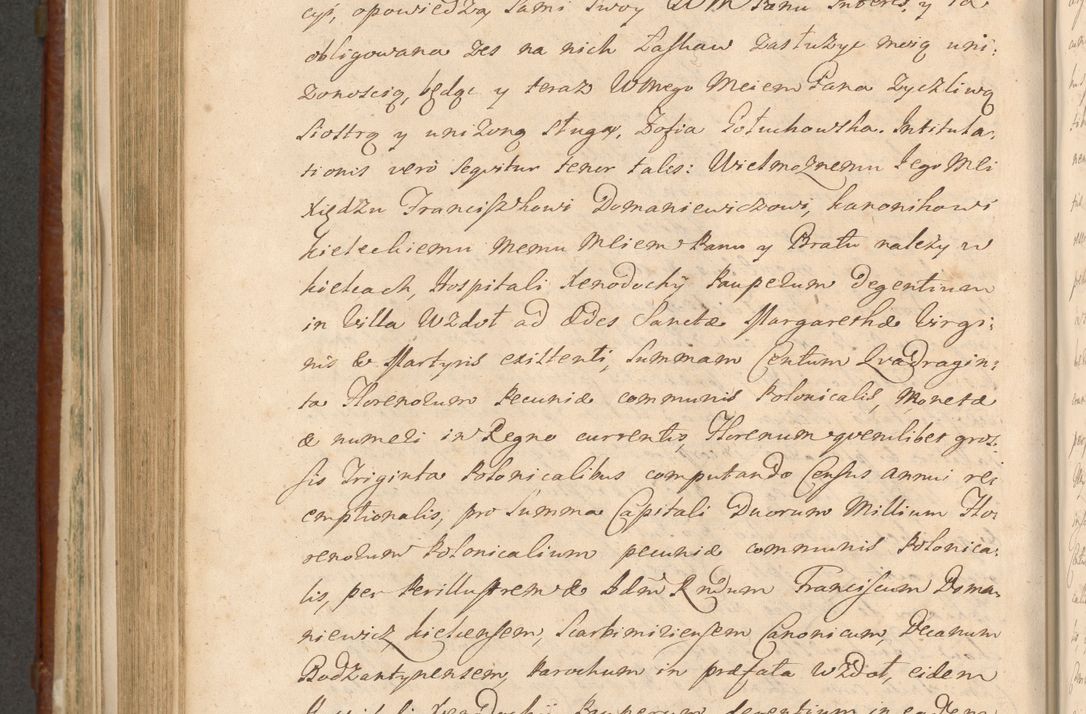 cyi, opowiedzą sami swoy WM Panu Interes, y ia
obligowana zes na nich Łaskaw zasłużyc moią uni:
zonoscią, będąc y teraz WMego Meiem Pana Zyczliwą
Siostrą y unizoną sługą. Zofia Gołuchowska. Intitula:
tionis verò seqvitur tenor talis: Wielmoznemu Jego Mci
Xiędzu Franciszkowi Domaniewiczowi, kanonikowi
kieleckiemu Memu Mciem Panu y Bratu należy w
kielcach, Hospitali Xenodochÿ Pauperum Degentium
in Villa Wzdoł ad Ædes Sanctæ Margarethæ Virgi:
nis & Martyris existenti, Summam Centum Qvadragin:
ta Florenorum Pecuniæ communis Polonicalis, Monetæ
& numeri in Regno currentis, Florenum qvemlibet gros:
sis Triginta Polonicalibus computando Census annui re:
emptionalis, pro Summa Capitali Duorum Millium Flo:
renorum Polonicalium pecuniæ communis Polonica:
lis, per Perillustrem & Adm Rndum Franciscum Doma:
niewicz kielcensem, Scarbimiriensem Canonicum, Decanum
Bodzantynensem, Parochum in præfata Wzdoł, eidem
Hospitali Xenodochÿ Pauperum degentium in eadem